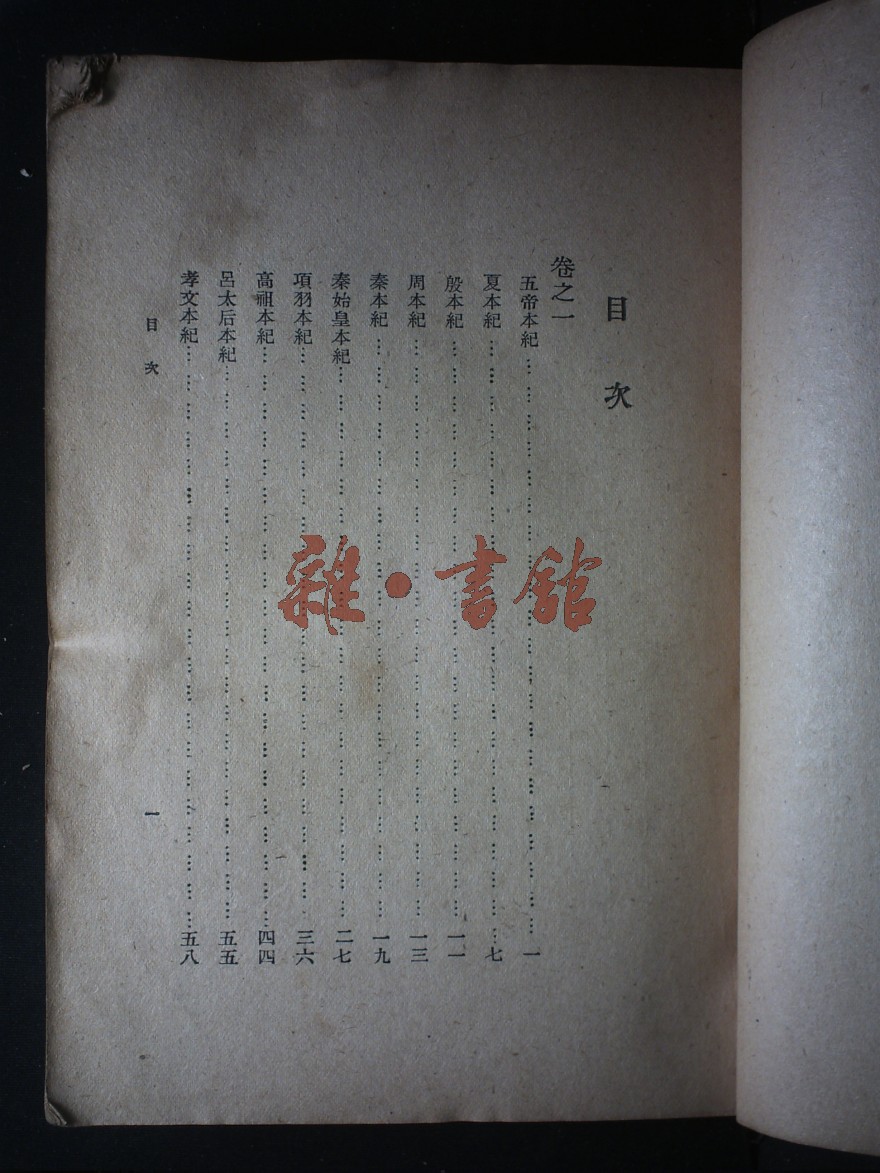 目次
卷之一
五帝本紀……………………………一
夏本紀……………………………七
殷本紀……………………………一一
周本紀……………………………一三
秦本紀……………………………一九
秦始皇本紀……………………………二七
項羽本紀……………………………三六
高祖本紀……………………………四四
呂太后本紀……………………………五五
孝文本紀……………………………五八
目次
一
雜·書館